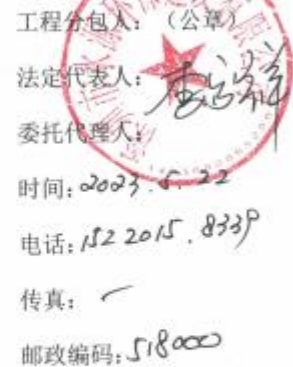 工程分包人：（公章）
法定代表人：
委托代理人：
时间：2023.5.22
电话：152 2015.8339
传真：一
邮政编码：518000